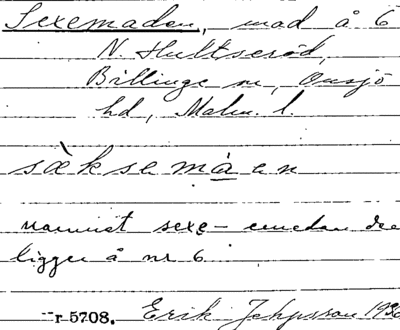 Sexemaden, mad å 6
N. Hultseröd,
Billinge sn, Onsjö
hd, Malm. l.
sæksemàen
namnet sexe- emedan den
ligger å nr 6
r 5708. Erik 1930